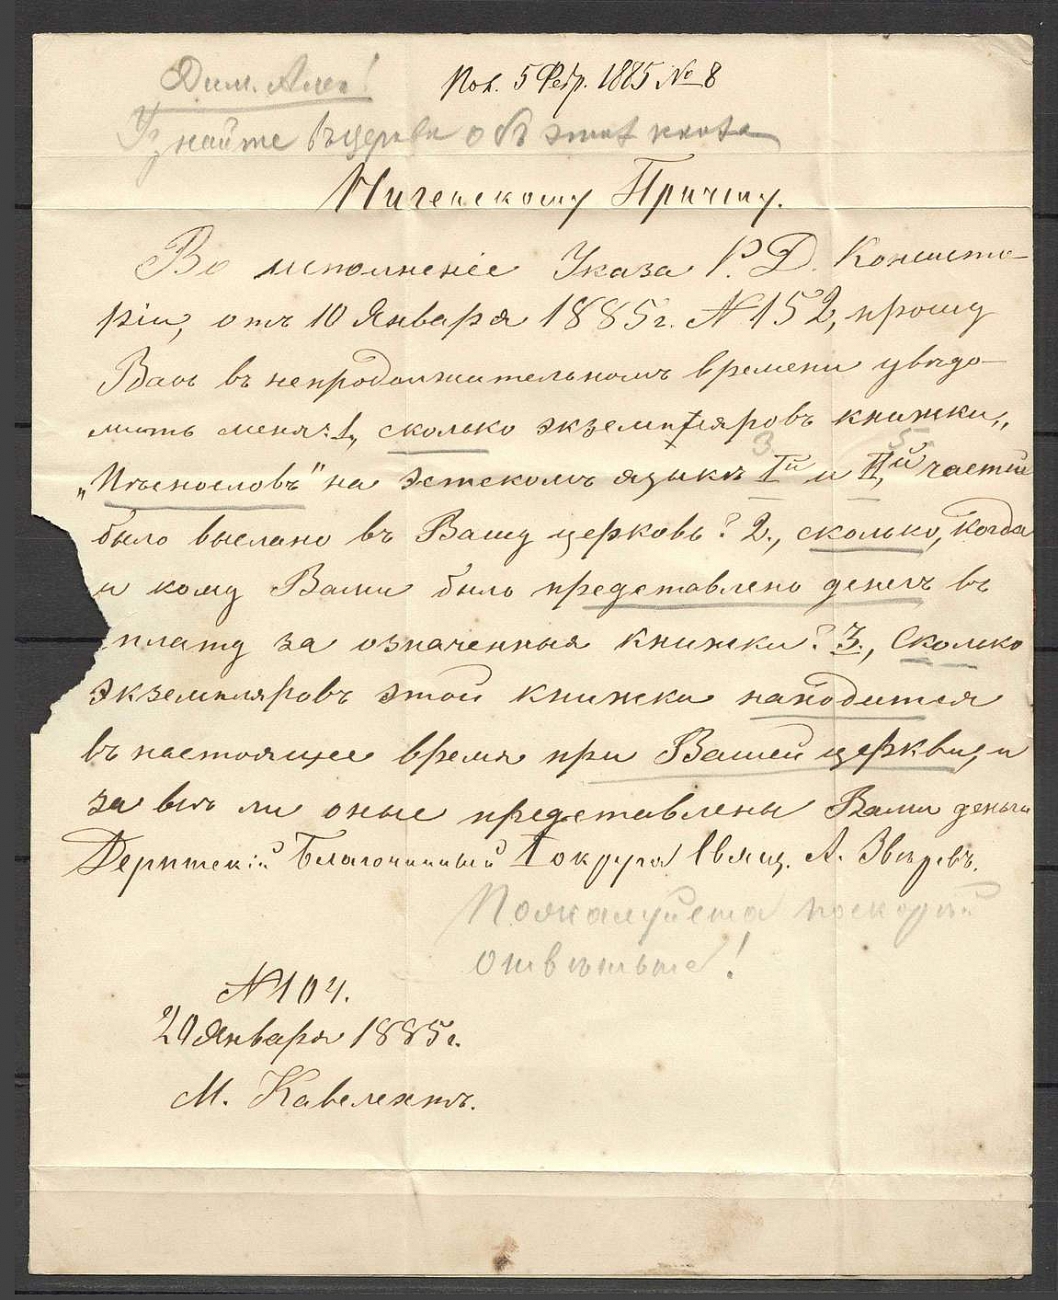 Дим. Алек!
Пол. 5 Февр. 1885 № 8
Узнайте въ церкви объ этой
Причту.
Во исполненіе Указа Р. Д. Консисто-
ріи, отъ 10 Января 1885 г. № 152, прошу
Васъ въ непродолжительномъ времени увѣдо-
мить меня: 1, сколько экземпляровъ книжки,,
„Пѣснословъ" на Эстскомъ языкѣ Iй и IIй частей
3 5
было выслано въ Вашу церковь? 2., сколько, когда
и кому Вами было представлено денегъ въ
плату за означенныя книжки? 3., Сколько
экземпляровъ этой книжки находится
въ настоящее время при Вашей церкви, и
за всѣ ли оные представлены Вами деньги
Дерптскій Благочинный 1 округа Свящ. А. Звѣревъ.
Пожалуйста поскорѣй
отвѣтьте!
№ 104.
20 Января 1885 г.
М. Кавелехтъ.